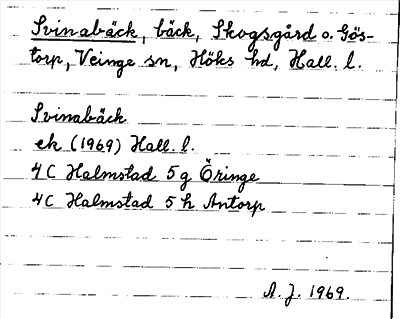 Svinabäck, bäck, Skogsgård o. Gös-
torp, Veinge sn, Höks hd, Hall. l.
Svinabäck
ek (1969) Hall. l.
4C Halmstad 5g Öringe
4C Halmstad 5h Antorp
A. J. 1969.